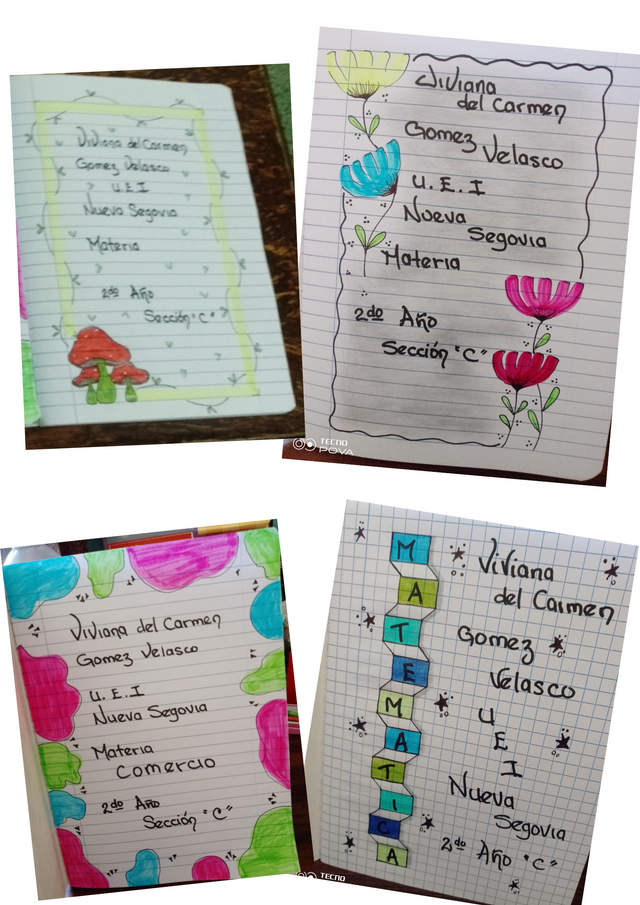 Viviana del Carmen
Gomez Velasco
U.E.I
Nueva Segovia
Materia
2do Año
Sección "C"
Viviana
del Carmen
Gomez Velasco
U.E.I
Nueva
Segovia
Materia
2do Año
Sección "C"
TECNO
POVA
Viviana del Carmen
Gomez Velasco
U.E.I
Nueva Segovia
Materia
Comercio
2do Año
Sección "C"
MATEMATICA
Viviana
del Carmen
Gomez
Velasco
U
E
I
Nueva
Segovia
2do Año "C"
TECNO